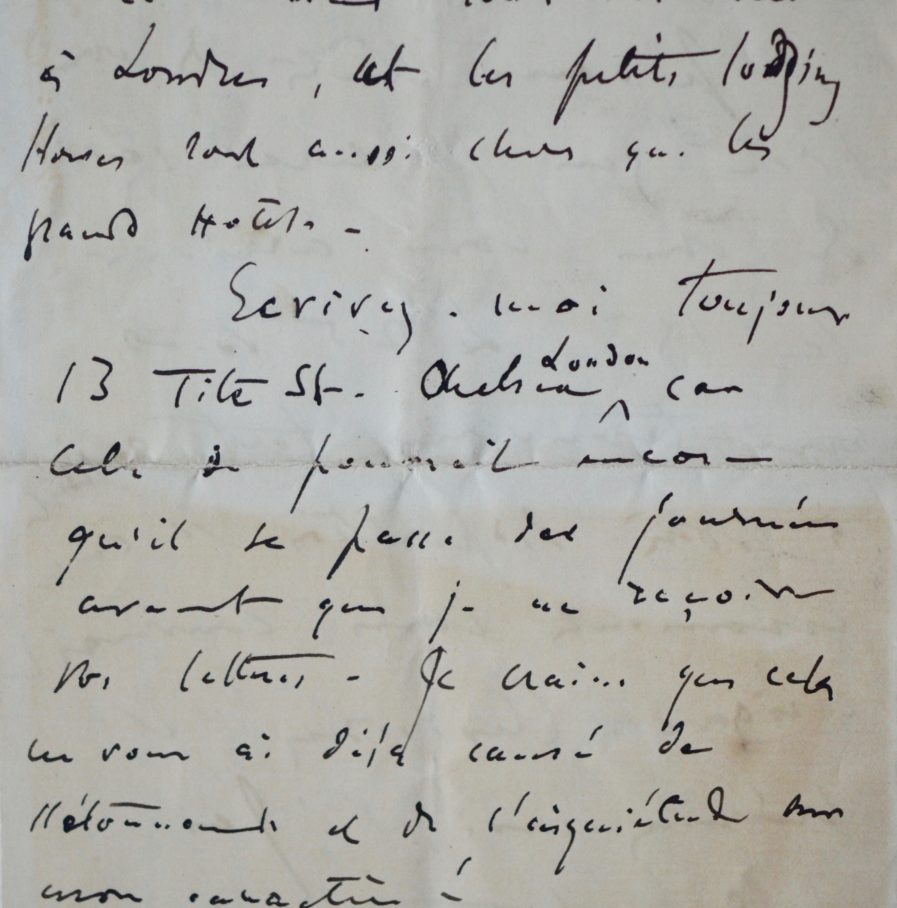 à Londres, et les petits lodging
Houses sont aussi chers que les
grands Hotels -
Ecrivez-moi toujours
13 Tite St. Chelsea London car
cela se pourrait encore
qu'il se passe des journées
avant que je ne reçoive
vos lettres - Je crains que cela
ne vous ai déjà causé de
l'étonnement et de l'inquiétude sur
mon caractère !